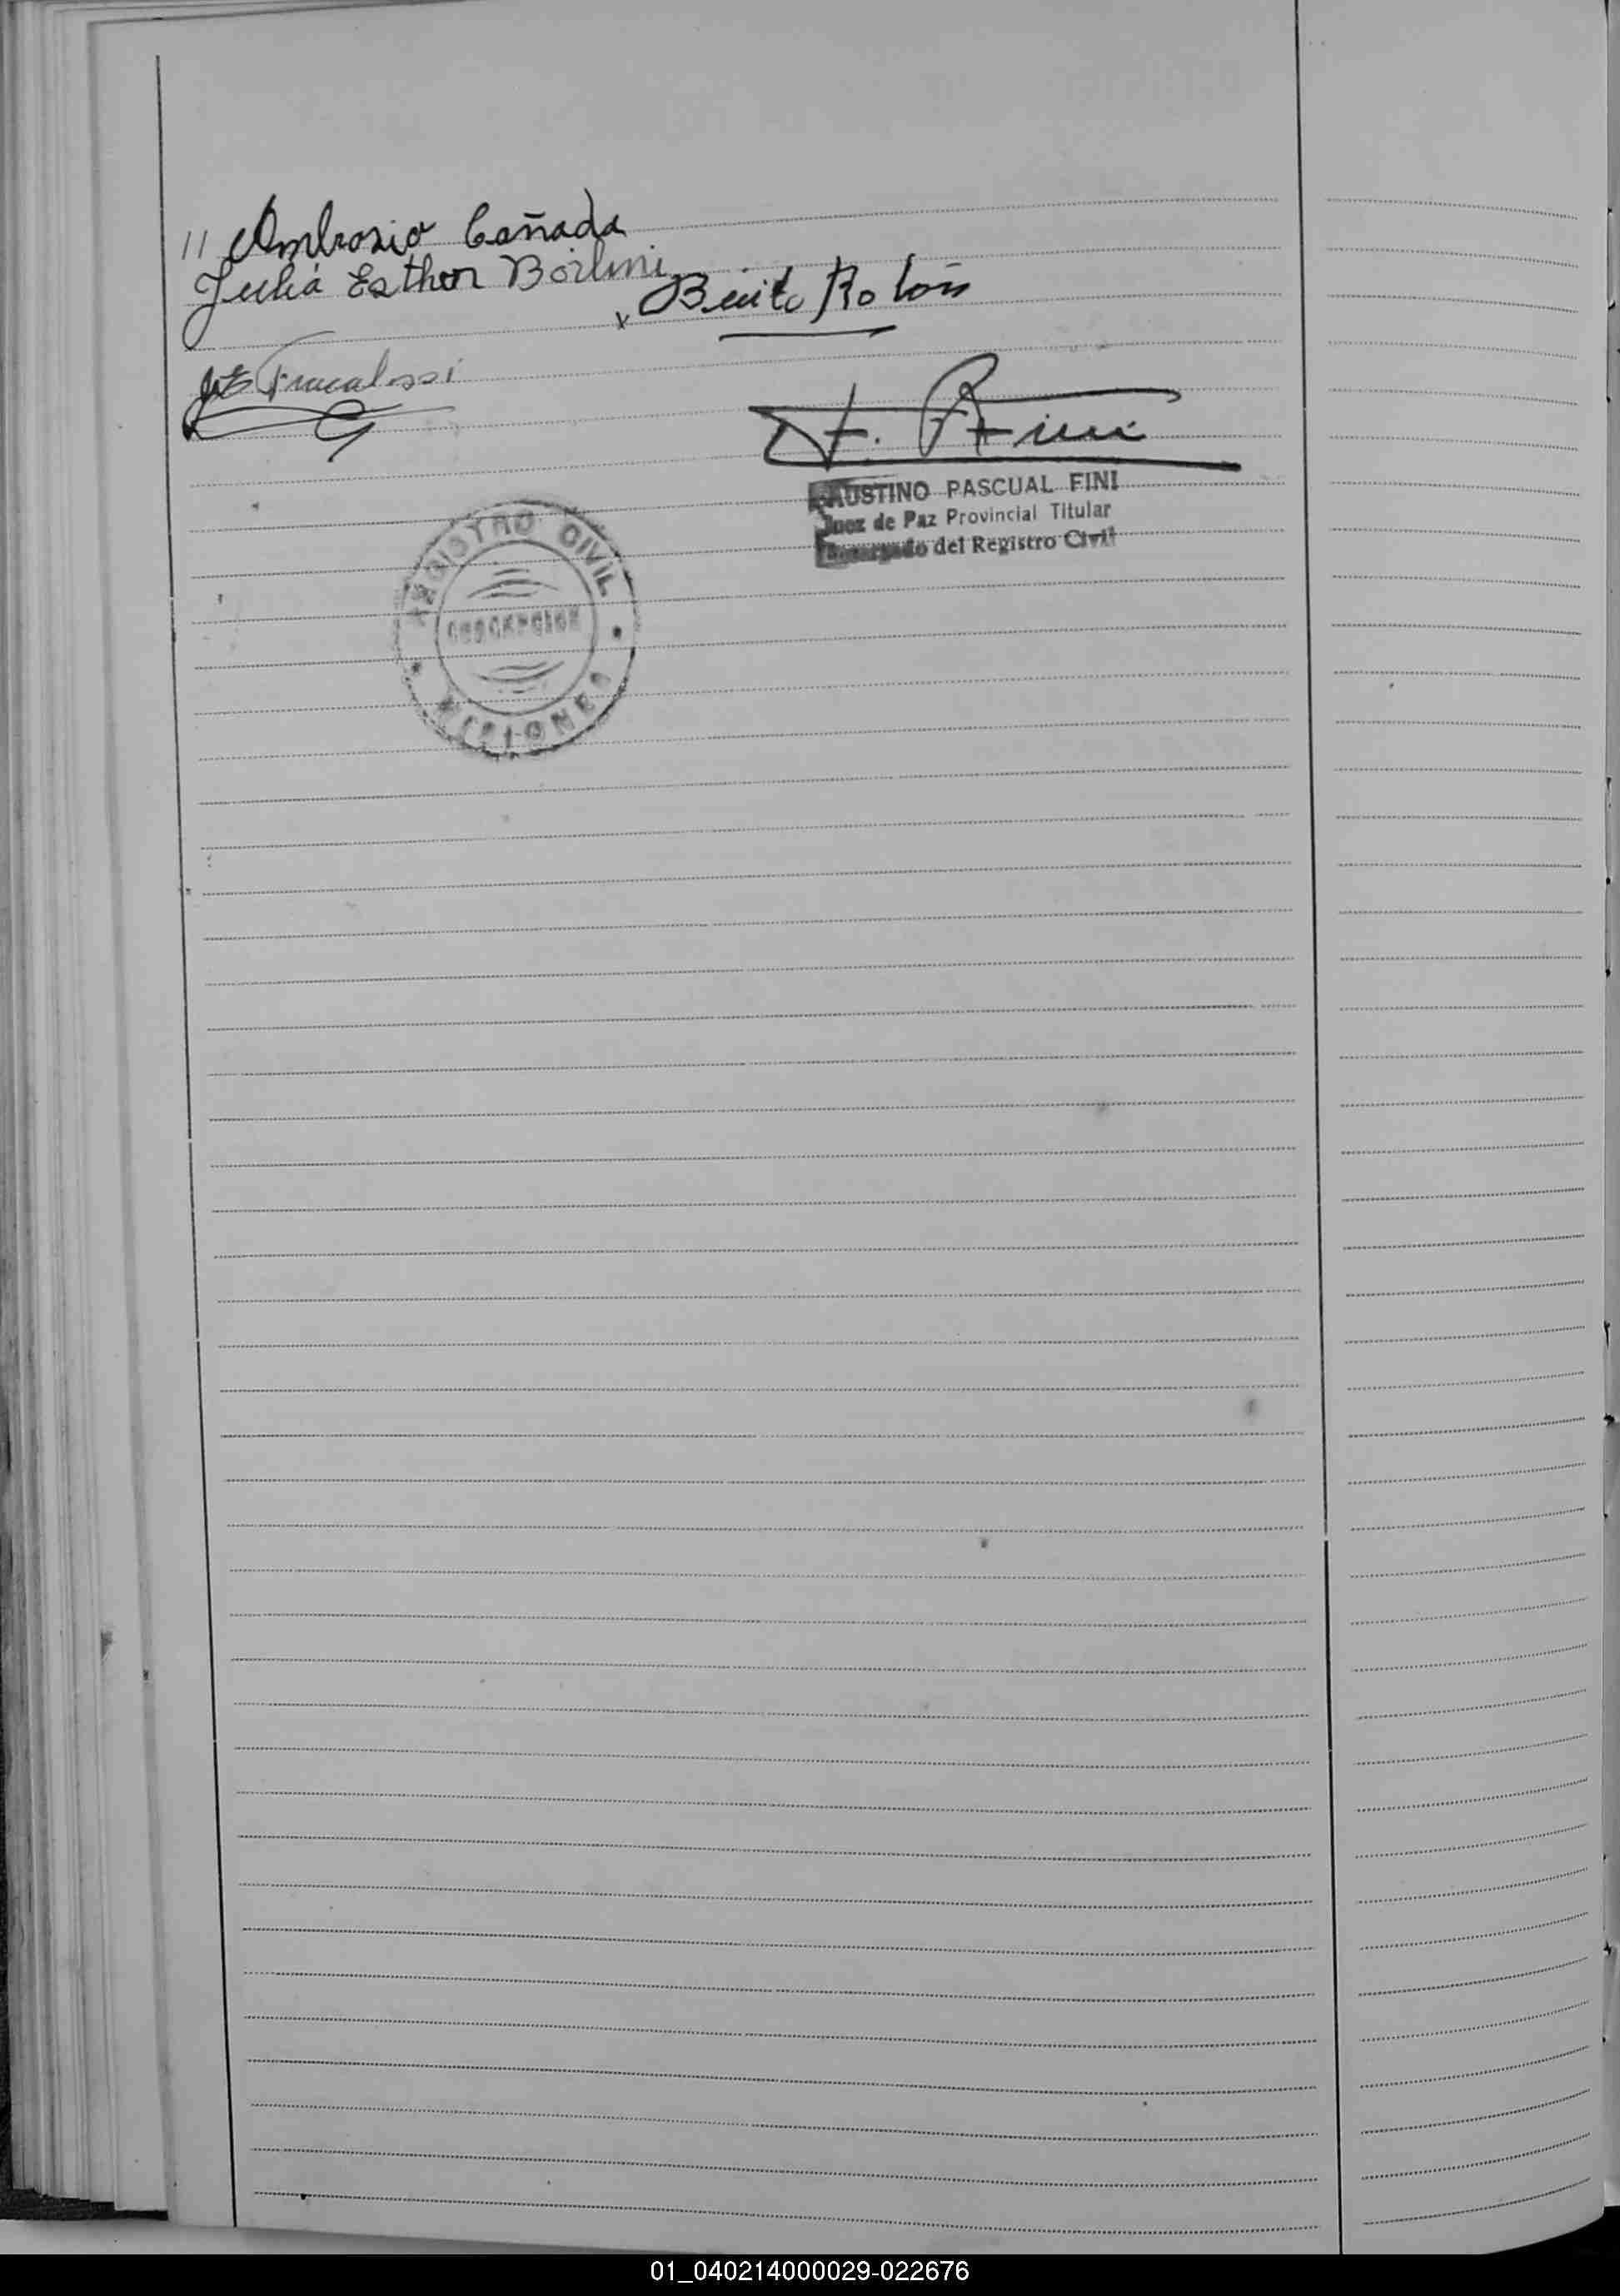 // Ambrosio Cañada
Julia Esther Borlini
Benito Rolón
J. E. Fracalossi
F. Fini
FAUSTINO PASCUAL FINI
Juez de Paz Provincial Titular
Encargado del Registro Civil
REGISTRO CIVIL
CONCEPCION
MISIONES
01_040214000029-022676